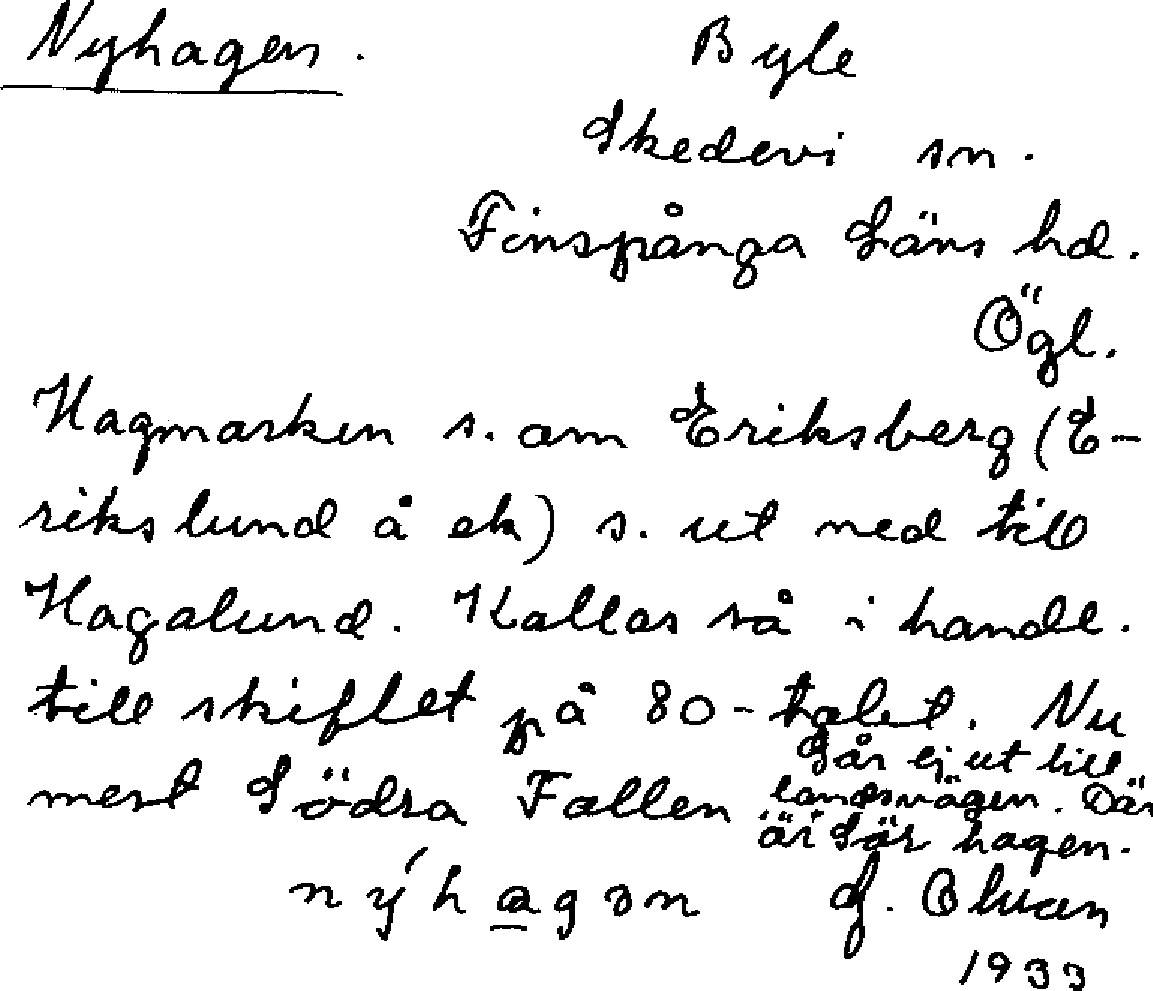 Nyhagen.
Byle
Skedevi sn.
Finspånga Läns hd.
Ögl.
Hagmarken s. om Eriksberg (E-
riks lund å ek) s. ut ned till
Hagalund. Kallas så i handl.
till skiftet på 80-talet. Nu
mest Södra Fallen
Går ej ut till
landsvägen. Där
är Sör hagen.
nýhagən
1933